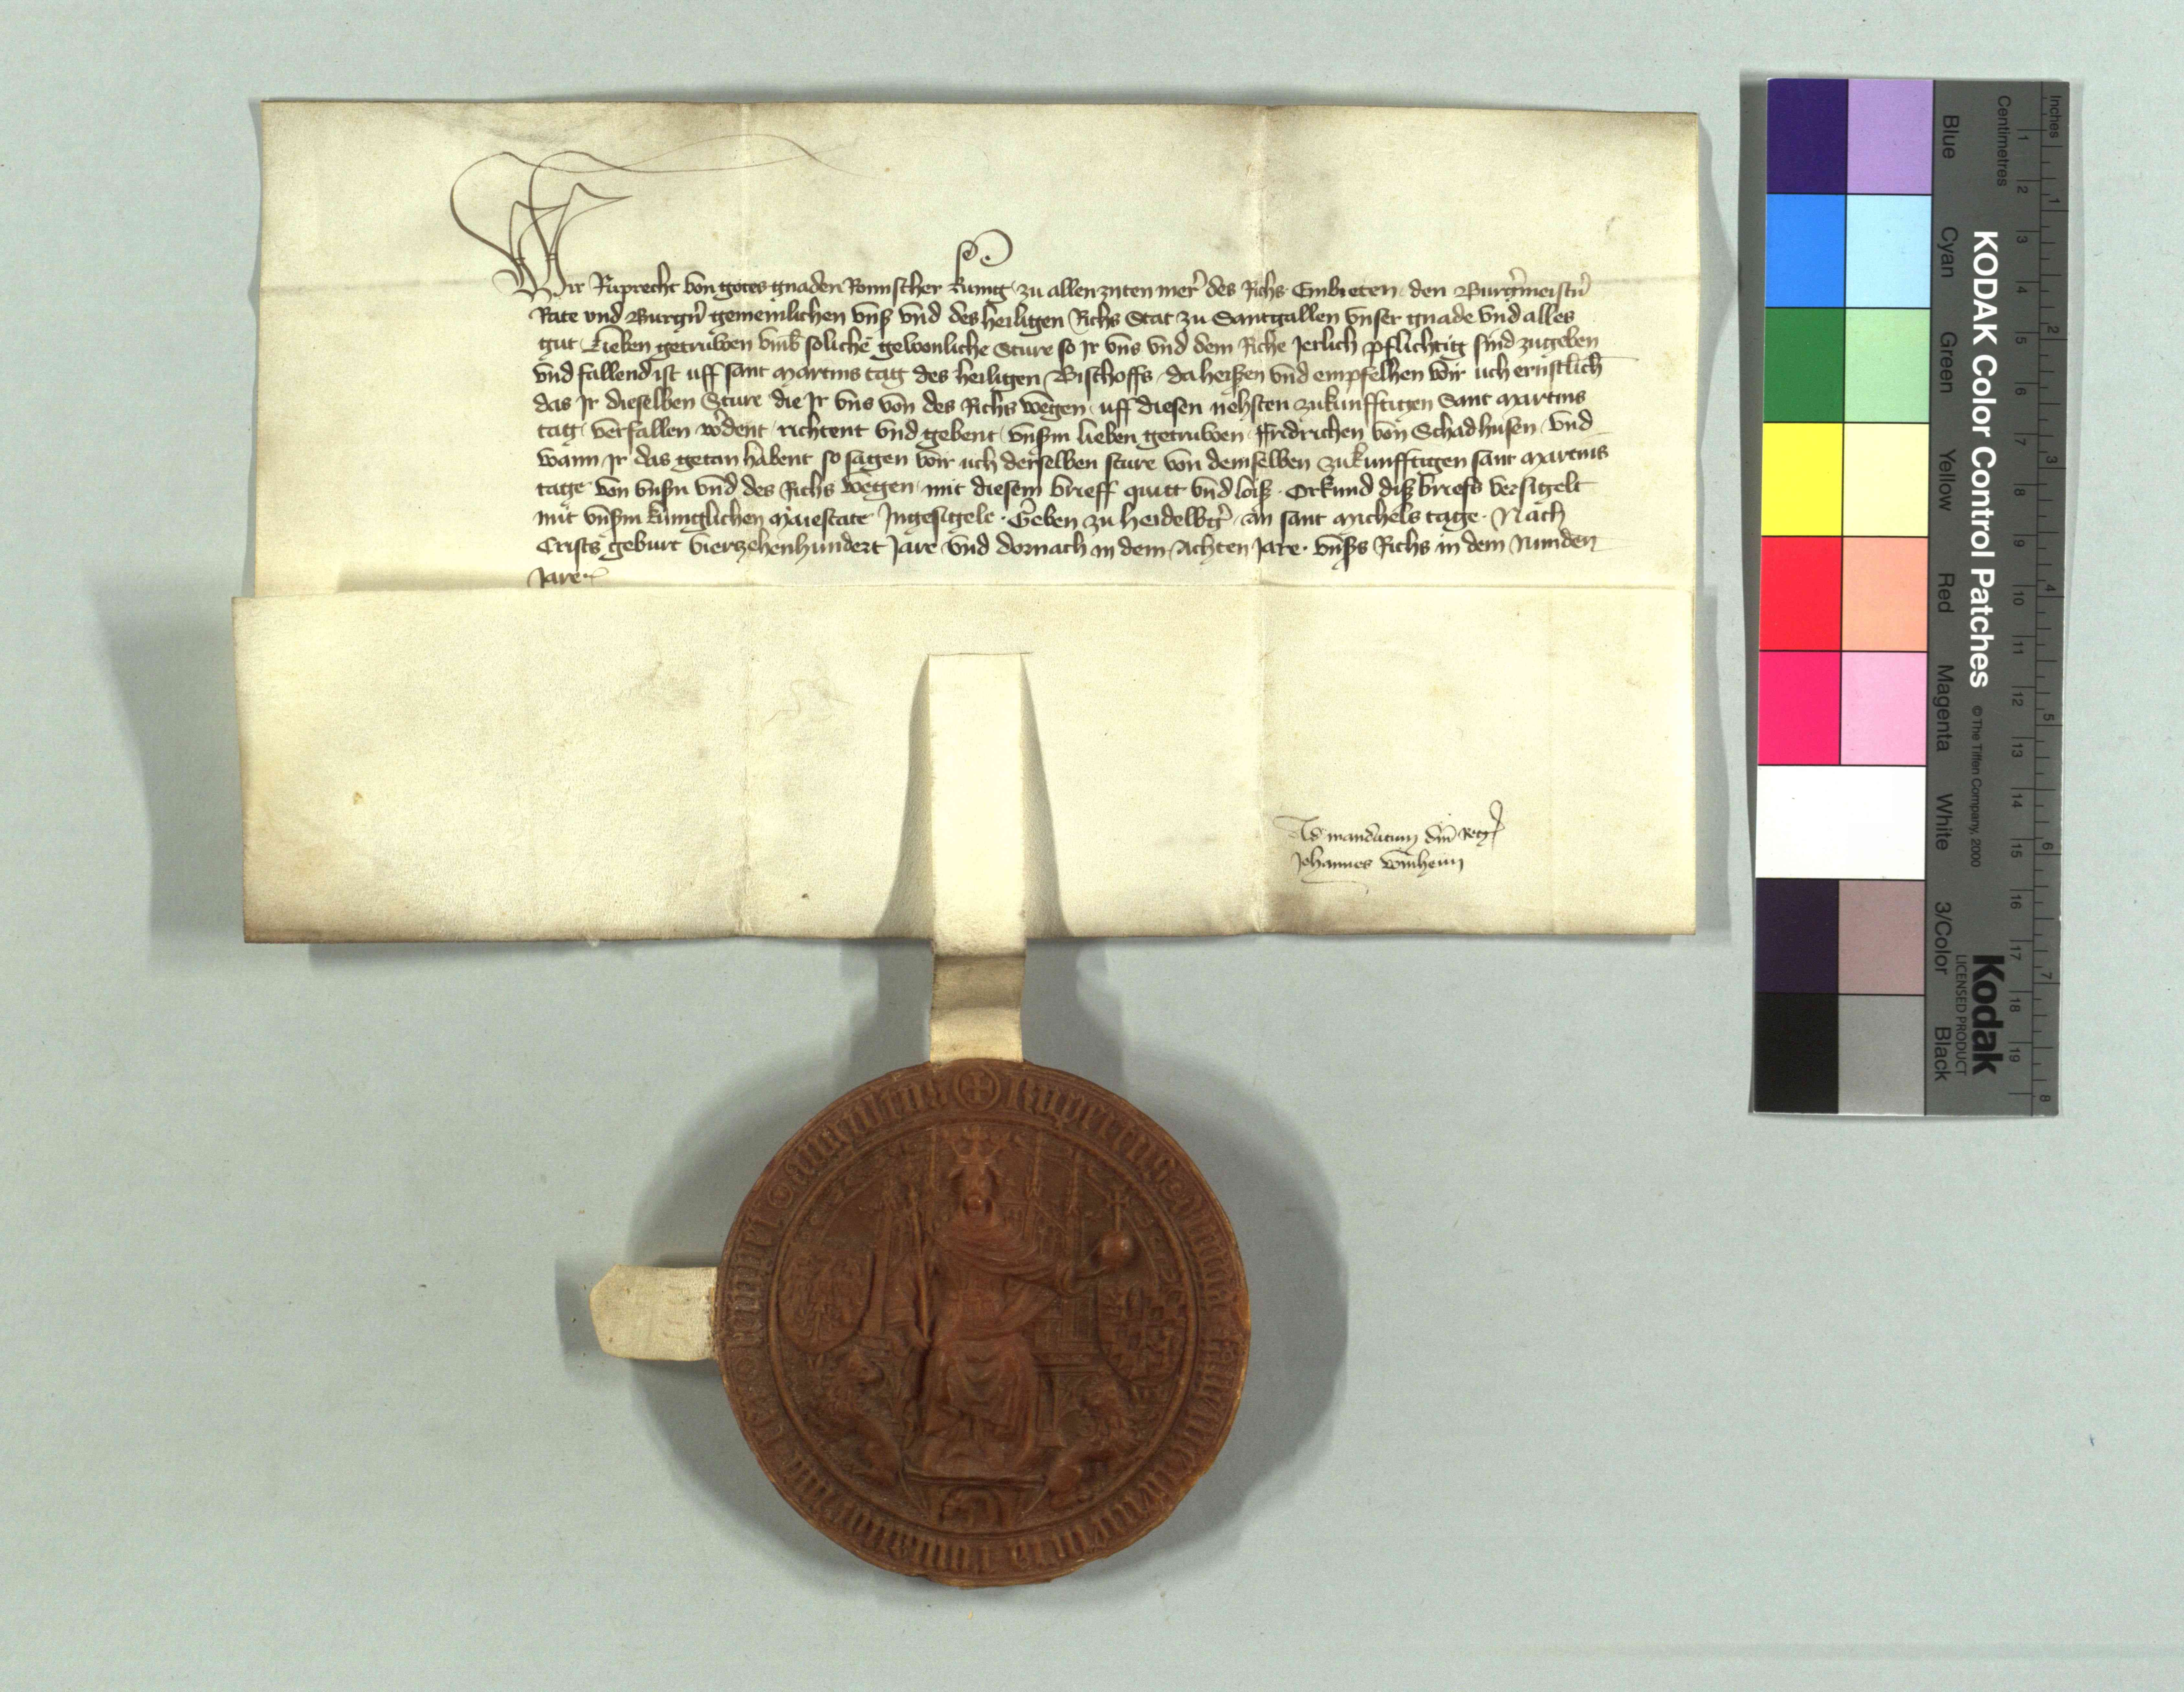 Wir Ruprecht von gotes gnaden Romischer kunig zu allen zyten merer des Richs Embieten den Burgermeistern
Rate vnd Burgern gemeinlichen vnser vnd des heiligen Richs Stat zu Santgallen vnser gnade vnd alles
gut Lieben getruwen vmb soliche gewonliche Sture so Ir vns vnd dem Riche Jerlich pflichtig sind zugeben
vnd fallend ist uff sant Martins tag des heiligen Bischoffs da heißen vnd empfelhen wir uch ernstlich
das Ir dieselben Sture die Ir vns von des Richs wegen uff diesen nehsten zukunfftigen Sant Martins
tag verfallen werdent richtent vnd gebent vnserm lieben getruwen Fridrichen von Schadhusen vnd
wann Ir das getan habent so sagen wir uch derselben sture von demselben zukunfftigen sant Martins
tage von vnsern vnd des Richs wegen mit diesem brieff quitt vnd loiß Orkund diß briefs versigelt
mit vnserm kuniglichen Maiestate Ingesigele Geben zu heidelberg an sant Michels tage Nach
Crists geburt vierzehenhundert Jare vnd dornach in dem Achten Jare vnsers Richs in dem Nunden
Jare
Ad mandatum domini Regis
Johannes winheim
KODAK Color Control Patches
© The Tiffen Company, 2000
Kodak
LICENSED PRODUCT
Inches 1 2 3 4 5 6 7 8
Centimetres 1 2 3 4 5 6 7 8 9 10 11 12 13 14 15 16 17 18 19
Blue Cyan Green Yellow Red Magenta White 3/Color Black